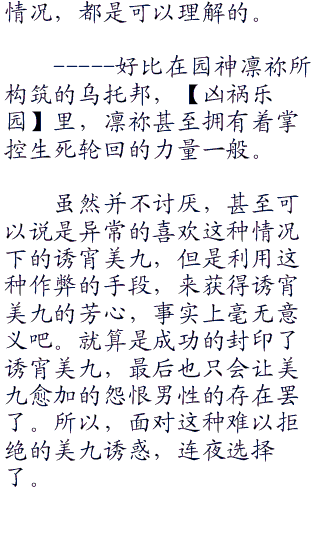 情况，都是可以理解的。
-----好比在园神凛祢所
构筑的乌托邦，【凶祸乐
园】里，凛祢甚至拥有着掌
控生死轮回的力量一般。
虽然并不讨厌，甚至可
以说是异常的喜欢这种情况
下的诱宵美九，但是利用这
种作弊的手段，来获得诱宵
美九的芳心，事实上毫无意
义吧。就算是成功的封印了
诱宵美九，最后也只会让美
九愈加的怨恨男性的存在罢
了。所以，面对这种难以拒
绝的美九诱惑，连夜选择
了。